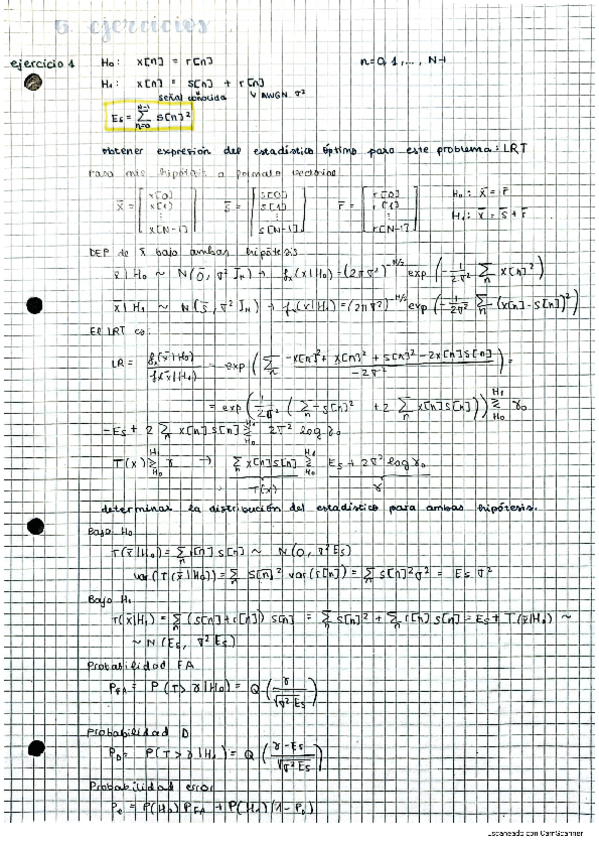 5. ejercicios
ejercicio 1 H0: x[n] = r[n] n=0,1,..., N-1
H1: x[n] = s[n] + r[n]
señal conocida AWGN σ²
Es = Σ_{n=0}^{N-1} s[n]²
obtener expresión del estadístico óptimo para este problema: LRT
paso mis hipótesis a formato vectorial
x̄ = [x[0] x[1] ⋮ x[N-1]] s̄ = [s[0] s[1] ⋮ s[N-1]] r̄ = [r[0] r[1] ⋮ r[N-1]] H0: x̄ = r̄
H1: x̄ = s̄ + r̄
DEP de x̄ bajo ambas hipótesis
x̄|H0 ~ N(0̄, σ² I_N) → f_x(x|H0) = (2πσ²)^{-N/2} exp(-1/2σ² Σ_n x[n]²)
x̄|H1 ~ N(s̄, σ² I_N) → f_x(x|H1) = (2πσ²)^{-N/2} exp(-1/2σ² Σ_n (x[n]-s[n])²)
El LRT es:
LR = f(x̄|H1)/f(x̄|H0) = exp(Σ_n (-x[n]² + x[n]² + s[n]² - 2x[n]s[n])/(-2σ²)) =
= exp(1/2σ² (Σ_n -s[n]² + 2 Σ_n x[n]s[n])) ≷^{H1}_{H0} γ0
-Es + 2 Σ_n x[n]s[n] ≷^{H1}_{H0} 2σ² log γ0
T(x) ≷^{H1}_{H0} γ → Σ_n x[n]s[n] ≷^{H1}_{H0} Es + 2σ² log γ0
T(x) γ
determinar la distribución del estadístico para ambas hipótesis.
Bajo H0
T(x̄|H0) = Σ_n r[n] s[n] ~ N(0, σ²Es)
var(T(x̄|H0)) = Σ_n s[n]² var(r[n]) = Σ_n s[n]² σ² = Es σ²
Bajo H1
T(x̄|H1) = Σ_n (s[n]+r[n]) s[n] = Σ_n s[n]² + Σ_n r[n] s[n] = Es + T(x̄|H0) ~
~ N(Es, σ²Es)
Probabilidad FA
P_FA = P(T>γ|H0) = Q(γ/√(σ²Es))
Probabilidad D
P_D = P(T>γ|H1) = Q((γ-Es)/√(σ²Es))
Probabilidad error
Pe = P(H0) P_FA + P(H1)(1-P_D)
Escaneado con CamScanner